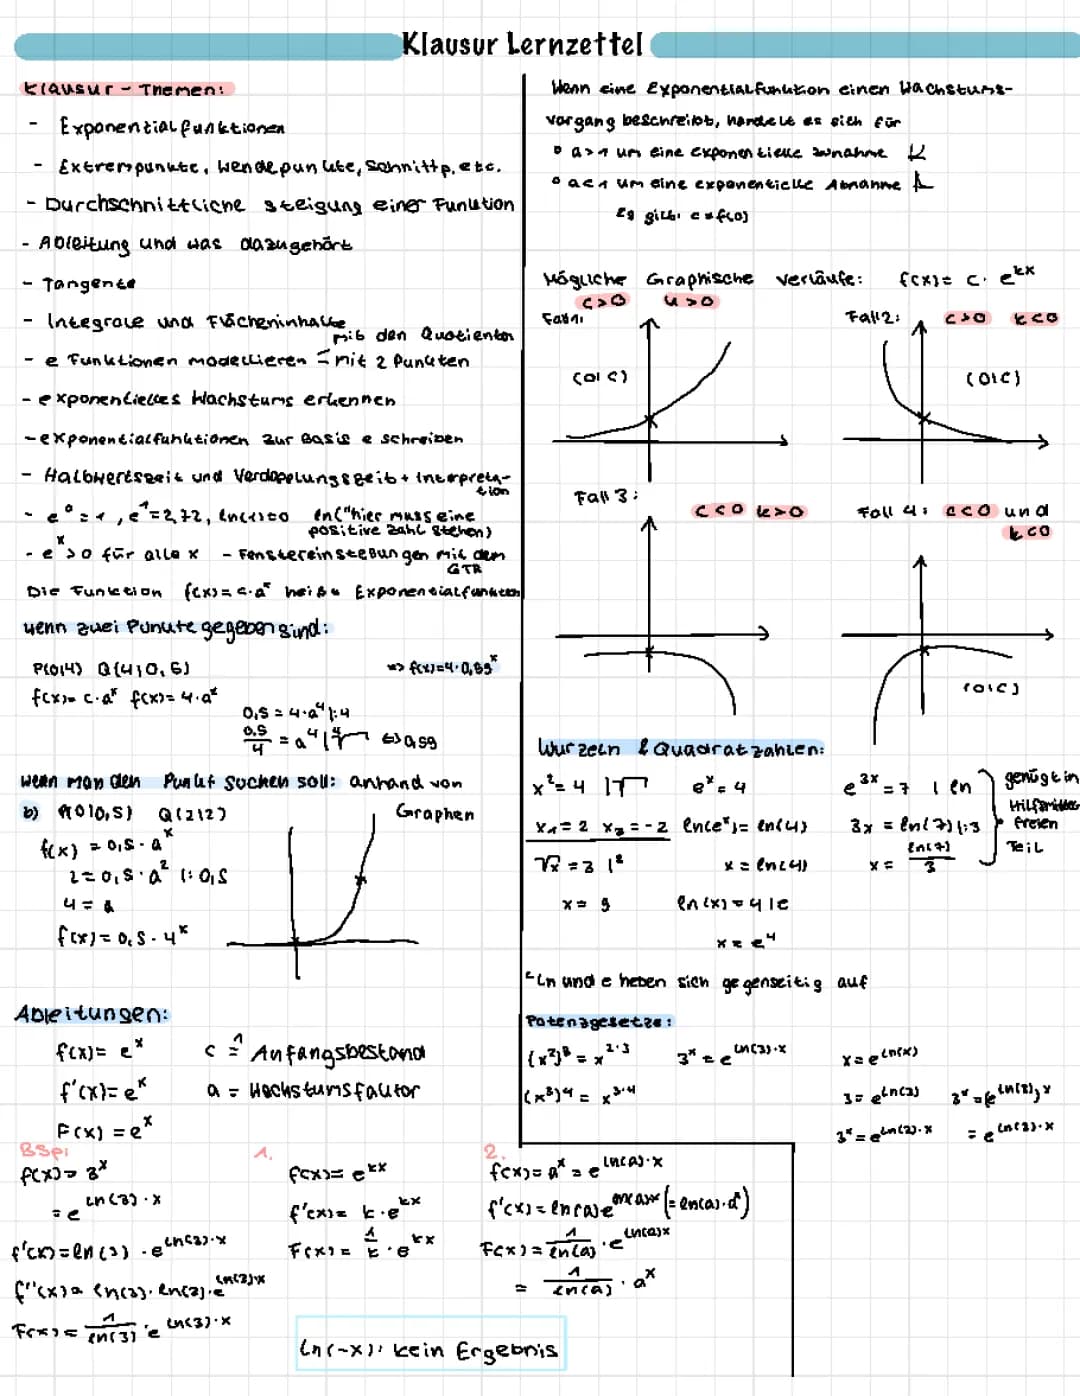 Klausur Lernzettel
Klausur - Themen:
- Exponentialfunktionen
- Extrempunkte, Wendepunkte, Schnittp, etc.
- Durchschnittliche steigung einer Funktion
- Ableitung und was dazugehört
- Tangente
- Integrale und Flächeninhalte
- e Funktionen modellieren - mit 2 Punkten
mit den Quotienten
- exponentielles Wachstums erkennen
- exponentialfunktionen zur Basis e schreiben
- Halbwertszeit und Verdopelungszeit + Interpreta-
tion
- e⁰=1, e¹=2,72, ln(1)=0 ln("hier muss eine
positive Zahl stehen)
- eˣ>0 für alle x - Fenstereinstellungen mit dem
GTR
Die Funktion f(x)=c·aˣ heißt Exponentialfunktion
wenn zwei Punkte gegeben sind:
P(0|4) Q(4|0,5) => f(x)=4·0,59ˣ
f(x)= c·aˣ f(x)= 4·aˣ
0,5 = 4·a⁴ |:4
0,5/4 = a⁴ |⁴√ <=> 0,59
wenn man den Punkt suchen soll: anhand von
Graphen
b) P(0|0,5) Q(2|2)
f(x) = 0,5·aˣ
2=0,5·a² |:0,5
4 = a
f(x)= 0,5·4ˣ
Ableitungen:
f(x)= eˣ
f'(x)= eˣ
F(x) = eˣ
c ≙ Anfangsbestand
a = Wachstumsfaktor
BSP:
f(x)= 3ˣ
= e^(ln(3)·x)
f'(x)=ln(3)·e^(ln(3)·x)
f''(x)= ln(3)·ln(3)·e^(ln(3)·x)
F(x)= 1/ln(3)·e^(ln(3)·x)
1.
f(x)= e^(kx)
f'(x)= k·e^(kx)
F(x)= 1/k·e^(kx)
2.
f(x)= aˣ = e^(ln(a)·x)
f'(x)= ln(a)e^(ln(a)x) (=ln(a)·aˣ)
F(x)= 1/ln(a)·e^(ln(a)x)
= 1/ln(a)·aˣ
ln(-x): kein Ergebnis
Wenn eine Exponentialfunktion einen Wachstums-
vorgang beschreibt, handelt es sich für
° a>1 um eine exponentielle zunahme
° a<1 um eine exponentielle Abnahme
Es gilt: c=f(0)
Mögliche Graphische verläufe: f(x)= c·e^(kx)
Fall 1: c>0 k>0
(0|c)
Fall 2: c>0 k<0
(0|c)
Fall 3:
c<0 k>0
Fall 4: c<0 und
k<0
(0|c)
Wurzeln & Quadratzahlen:
x²= 4 |√
x₁=2 x₂=-2
√x =3 |²
x= 9
eˣ=4
ln(eˣ)= ln(4)
x= ln(4)
ln(x)=4 |e
x= e⁴
e^(3x)=7 | ln
3x = ln(7) |:3
x= ln(7)/3
genügt im
Hilfsmittel
freien
Teil
ln und e heben sich gegenseitig auf
Potenzgesetze:
(x²)³ = x^(2·3)
(x³)⁴ = x^(3·4)
3ˣ = e^(ln(3)·x)
x=e^(ln(x))
3= e^(ln(3))
3ˣ=e^(ln(3)·x)
3ˣ=(e^(ln(3)))ˣ
= e^(ln(3)·x)